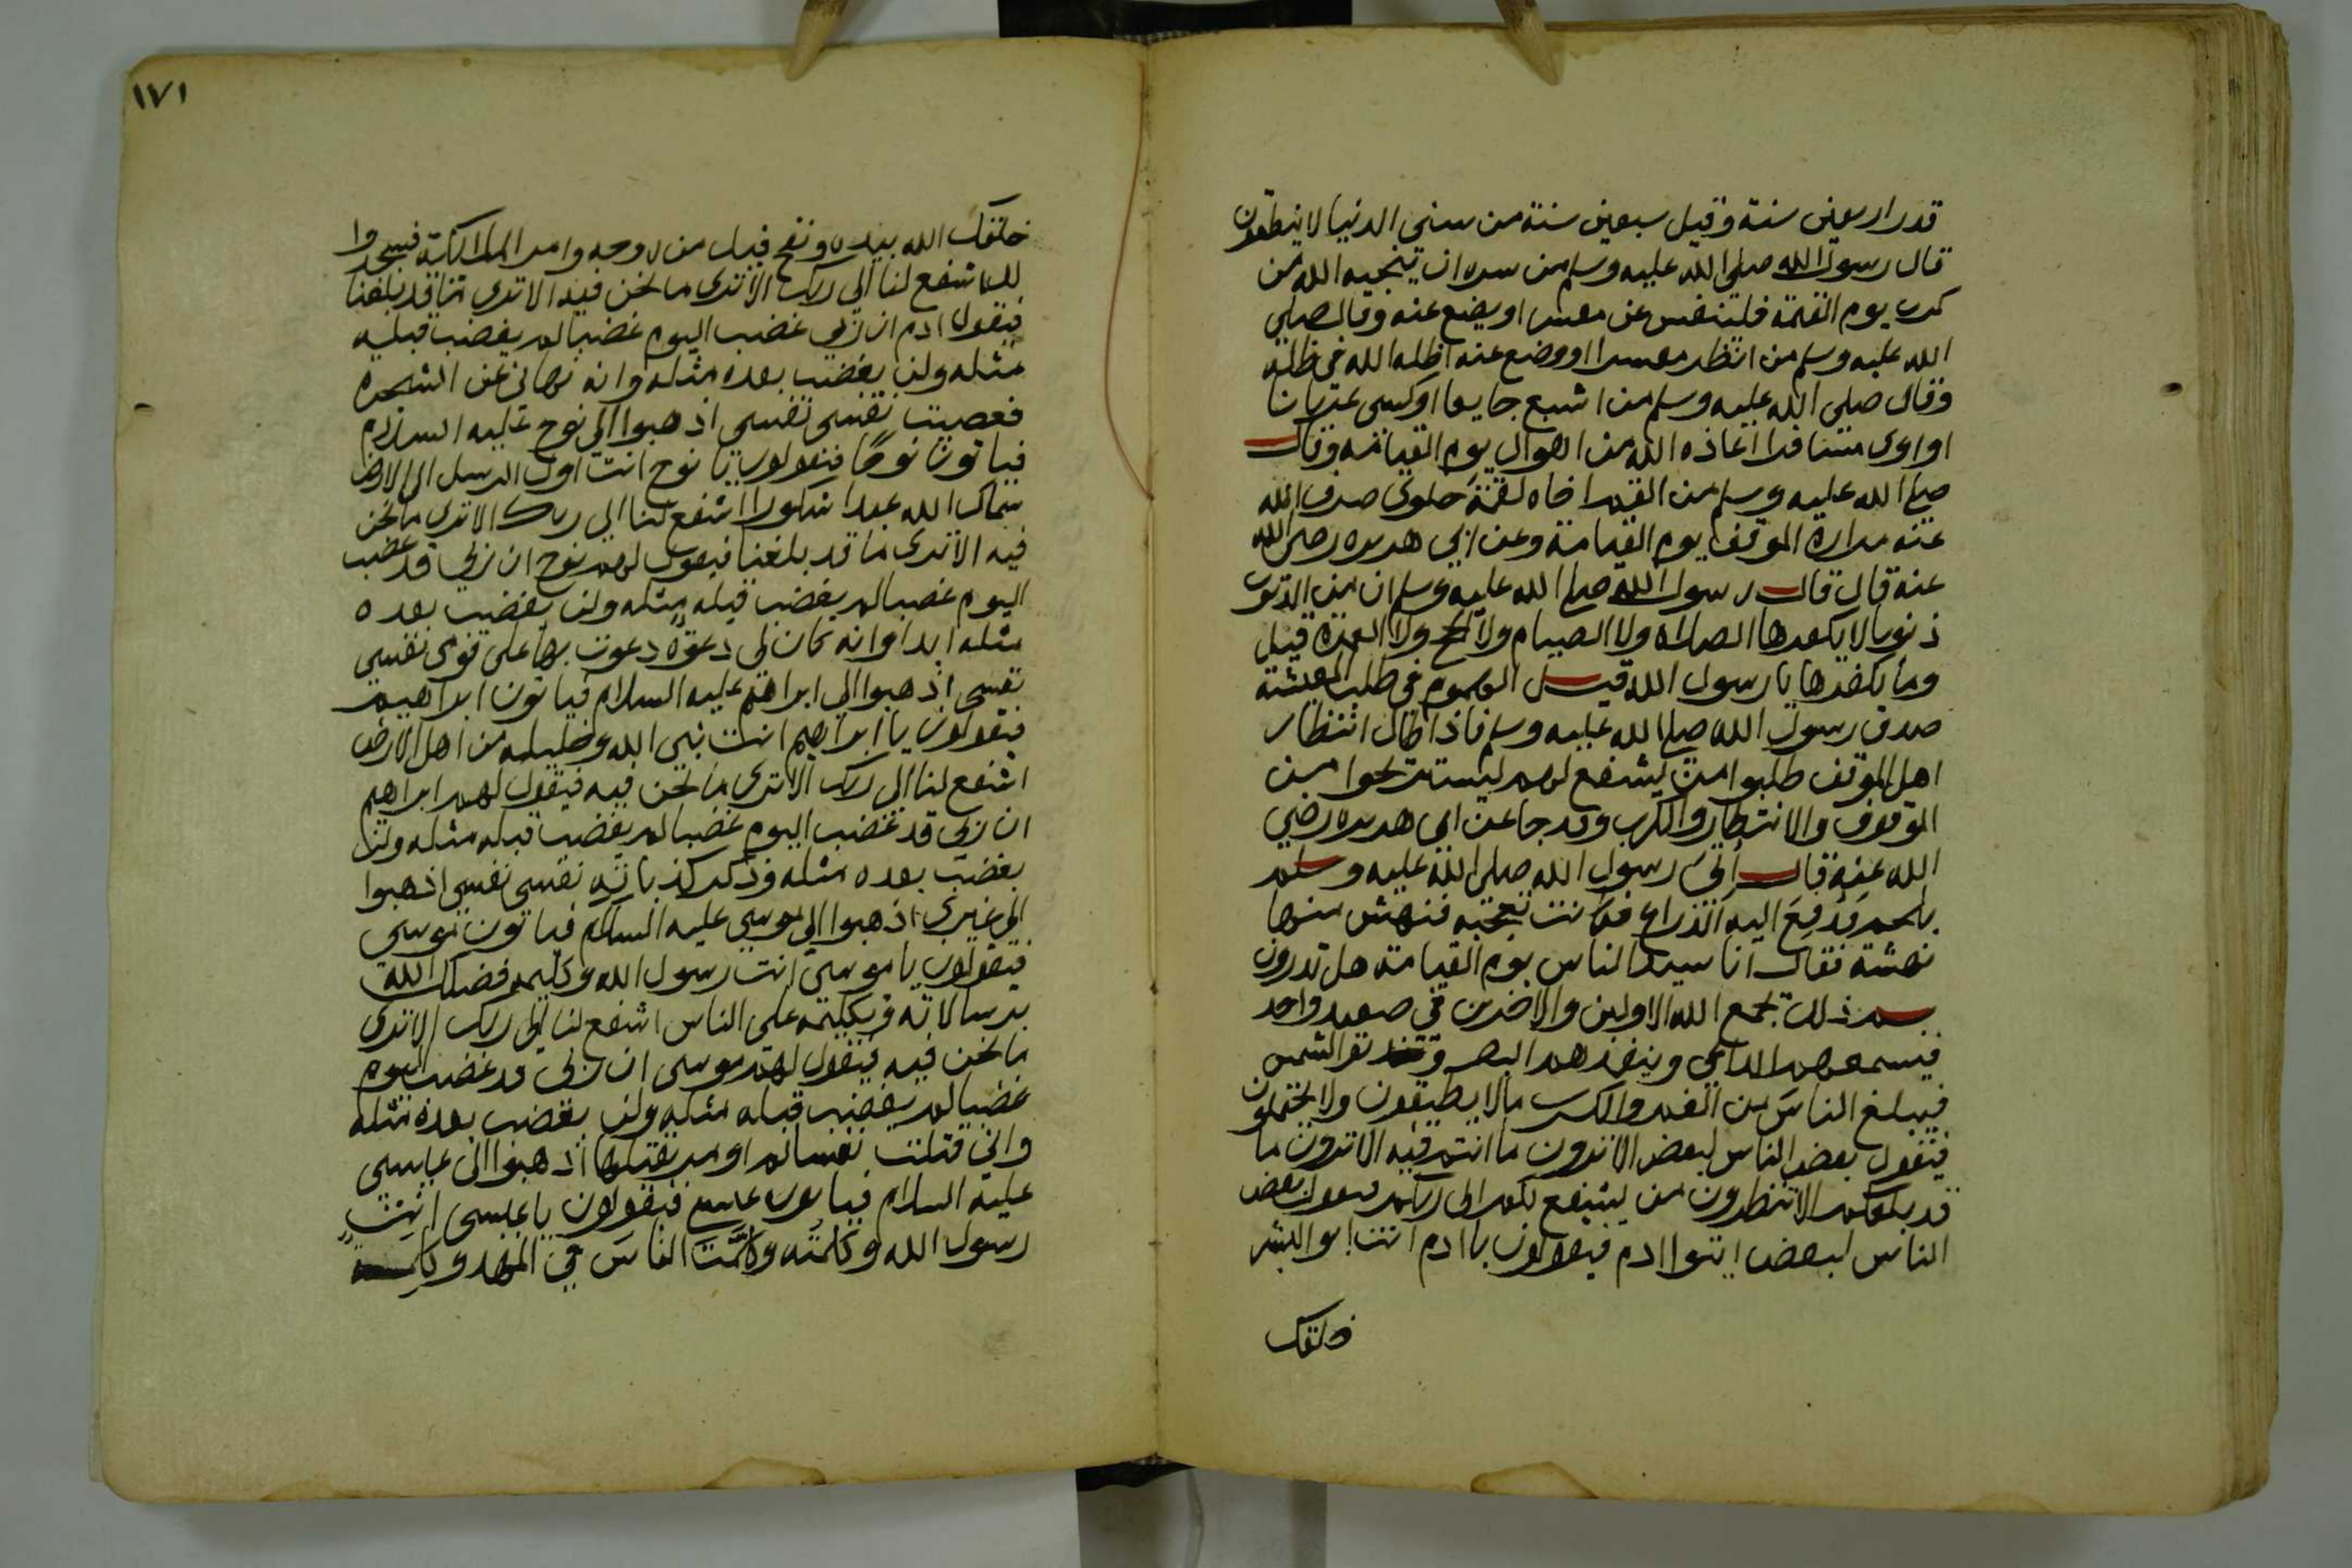 قدر اربعين سنة وقيل سبعين سنة من سني الدنيا لا ينطقون
قال رسول الله صلى الله عليه وسلم من سره ان ينجيه الله من
كرب يوم القيمة فلينفس عن معسر او يضع عنه وقال صلى
الله عليه وسلم من انظر معسرا او وضع عنه اظله الله في ظله
وقال صلى الله عليه وسلم من اشبع جايعا او كسى عريانا
او اوى مسافرا اعاذه الله من اهوال يوم القيامة وقال
صلى الله عليه وسلم من القم اخاه لقمة حلوى صرف الله
عنه مرارة الموقف يوم القيامة وعن ابي هريره رضي الله
عنه قال قال رسول الله صلى الله عليه وسلم ان من الذنوب
ذنوبا لا يكفرها الصلاة ولا الصيام ولا الحج ولا العمرة قيل
وما يكفرها يا رسول الله قيل الهموم في طلب المعيشة
صدق رسول الله صلى الله عليه وسلم فاذا طال انتظار
اهل الموقف طلبوا من يشفع لهم ليستريحوا من
الوقوف والانتظار والكرب وقد جا عن ابي هريره رضي
الله عنه قال أتي رسول الله صلى الله عليه وسلم
بلحم فدفع اليه الذراع فكانت تعجبه فنهش منها
نهشة فقال انا سيد الناس يوم القيامة هل تدرون
بم ذلك يجمع الله الاولين والاخرين في صعيد واحد
فيسمعهم الداعي وينفذهم البصر وتدنو الشمس
فيبلغ الناس من الغم والكرب مالا يطيقون ولا يحتملون
فيقول بعض الناس لبعض الا ترون ما انتم فيه الا ترون ما
قد بلغكم الا تنظرون من يشفع لكم الى ربكم فيقول بعض
الناس لبعض ايتوا ادم فيقولون يا ادم انت ابو البشر
خلقك
١٧١
خلقك الله بيده ونفخ فيك من روحه وامر الملائكة فسجدوا
لك اشفع لنا الى ربك الا ترى ما نحن فيه الا ترى ما قد بلغنا
فيقول ادم ان ربي غضب اليوم غضبا لم يغضب قبله
مثله ولن يغضب بعده مثله وانه نهاني عن الشجره
فعصيت نفسي نفسي اذهبوا الى نوح عليه السلام
فياتون نوحًا فيقولون يا نوح انت اول الرسل الى الارض
سماك الله عبدا شكورا اشفع لنا الى ربك الا ترى ما نحن
فيه الا ترى ما قد بلغنا فيقول لهم نوح ان ربي قد غضب
اليوم غضبا لم يغضب قبله مثله ولن يغضب بعده
مثله ابدا وانه كان لي دعوة دعوت بها على قومي نفسي
نفسي اذهبوا الى ابراهيم عليه السلام فياتون ابراهيم
فيقولون يا ابراهيم انت نبي الله وخليله من اهل الارض
اشفع لنا الى ربك الا ترى ما نحن فيه فيقول لهم ابراهيم
ان ربي قد غضب اليوم غضبا لم يغضب قبله مثله ولن
يغضب بعده مثله وذكر كذباته نفسي نفسي اذهبوا
الى غيري اذهبوا الى موسى عليه السلام فياتون موسى
فيقولون يا موسى انت رسول الله وكليمه فضلك الله
برسالاته وبكليمه على الناس اشفع لنا الى ربك الا ترى
ما نحن فيه فيقول لهم موسى ان ربي قد غضب اليوم
غضبا لم يغضب قبله مثله ولن يغضب بعده مثله
واني قتلت نفسا لم اومر بقتلها اذهبوا الى عيسى
عليه السلام فياتون عيسى فيقولون يا عيسى انت
رسول الله وكلمته وكلمت الناس في المهد وكلمة